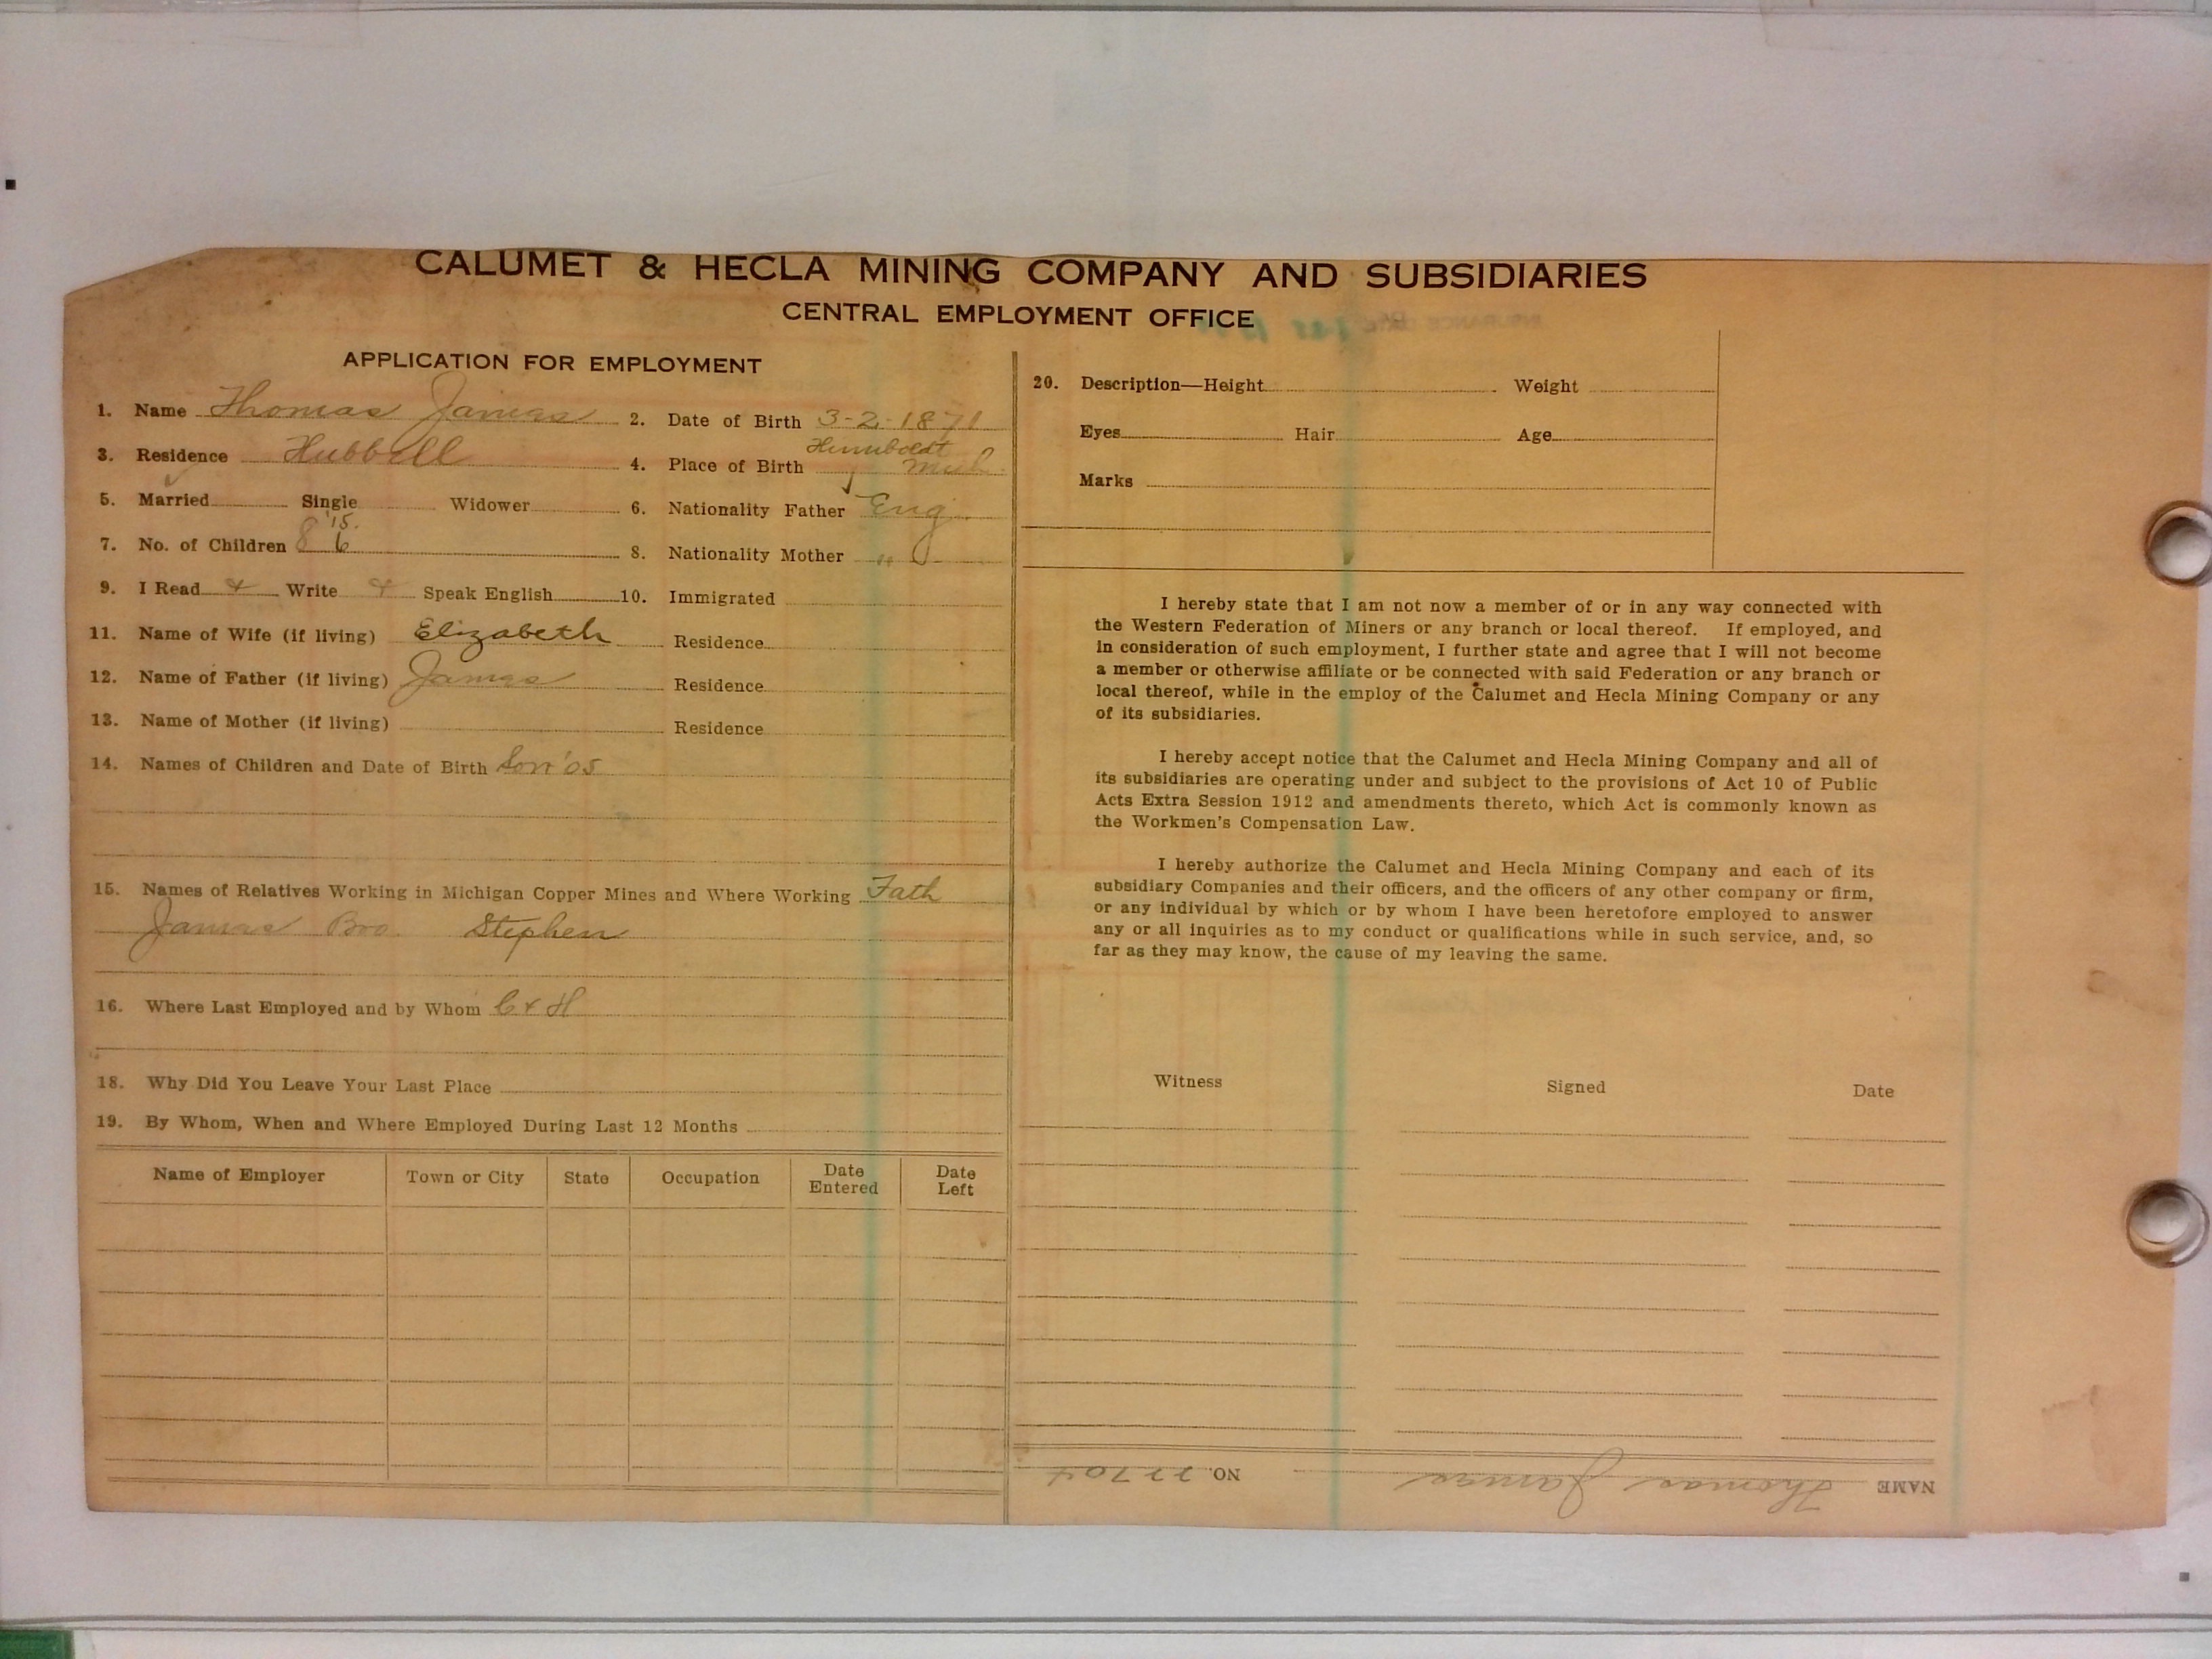 CALUMET & HECLA MINING COMPANY AND SUBSIDIARIES
CENTRAL EMPLOYMENT OFFICE
APPLICATION FOR EMPLOYMENT
1. Name Thomas James 2. Date of Birth 3-2-1871
3. Residence Hubbell 4. Place of Birth Humboldt Mich.
5. Married Single Widower 6. Nationality Father Eng
7. No. of Children 8 '15. 6 8. Nationality Mother "
9. I Read & Write & Speak English 10. Immigrated
11. Name of Wife (if living) Elizabeth Residence
12. Name of Father (if living) James Residence
13. Name of Mother (if living) Residence
14. Names of Children and Date of Birth Son '05
15. Names of Relatives Working in Michigan Copper Mines and Where Working Fath
James Bro Stephen
16. Where Last Employed and by Whom C & H
18. Why Did You Leave Your Last Place
19. By Whom, When and Where Employed During Last 12 Months
Name of Employer Town or City State Occupation Date Entered Date Left
20. Description—Height Weight
Eyes Hair Age
Marks
I hereby state that I am not now a member of or in any way connected with
the Western Federation of Miners or any branch or local thereof. If employed, and
in consideration of such employment, I further state and agree that I will not become
a member or otherwise affiliate or be connected with said Federation or any branch or
local thereof, while in the employ of the Calumet and Hecla Mining Company or any
of its subsidiaries.
I hereby accept notice that the Calumet and Hecla Mining Company and all of
its subsidiaries are operating under and subject to the provisions of Act 10 of Public
Acts Extra Session 1912 and amendments thereto, which Act is commonly known as
the Workmen's Compensation Law.
I hereby authorize the Calumet and Hecla Mining Company and each of its
subsidiary Companies and their officers, and the officers of any other company or firm,
or any individual by which or by whom I have been heretofore employed to answer
any or all inquiries as to my conduct or qualifications while in such service, and, so
far as they may know, the cause of my leaving the same.
Witness Signed Date
NAME Thomas James NO. 22704